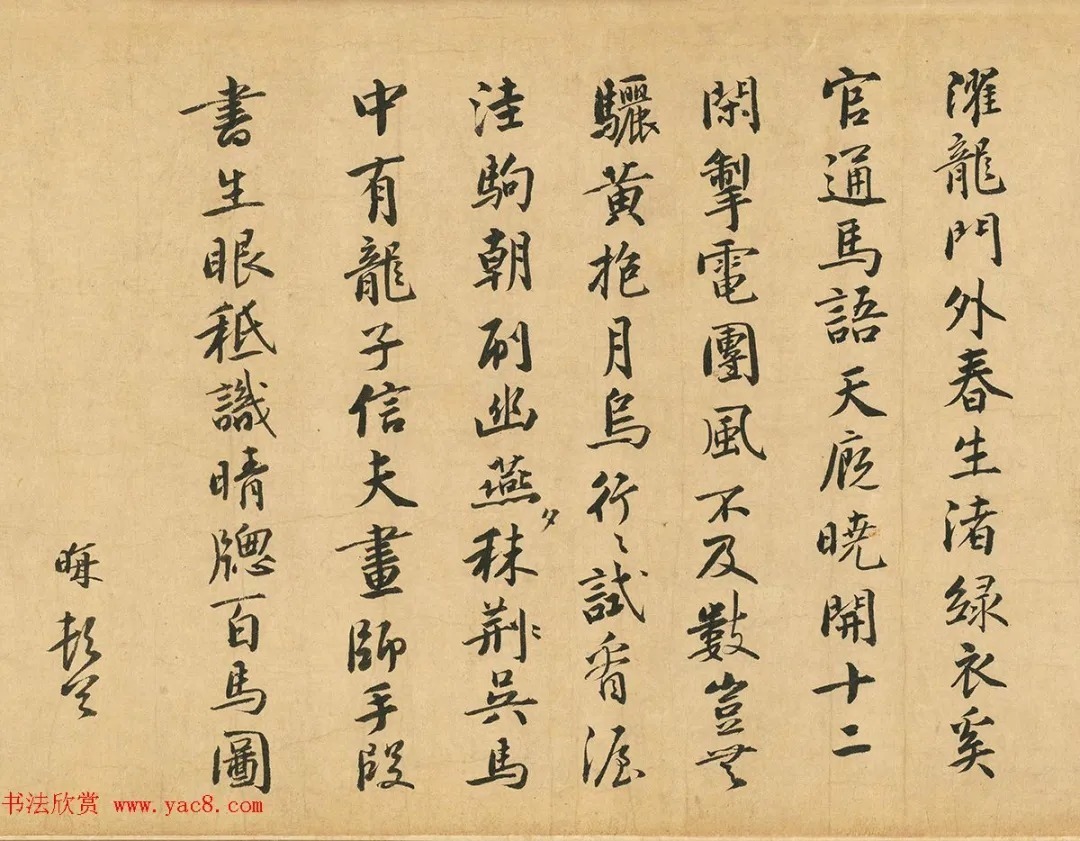 濯龍門外春生渚綠衣奚
官通馬語天廐曉開十二
閑掣電團風不及數豈無
驪黃抱月烏行〻試看渥
洼駒朝刷幽燕夕秣荆吳馬
中有龍子信夫畫師手段
書生眼秪識晴牕百馬圖
晦
书法欣赏 www.yac8.com